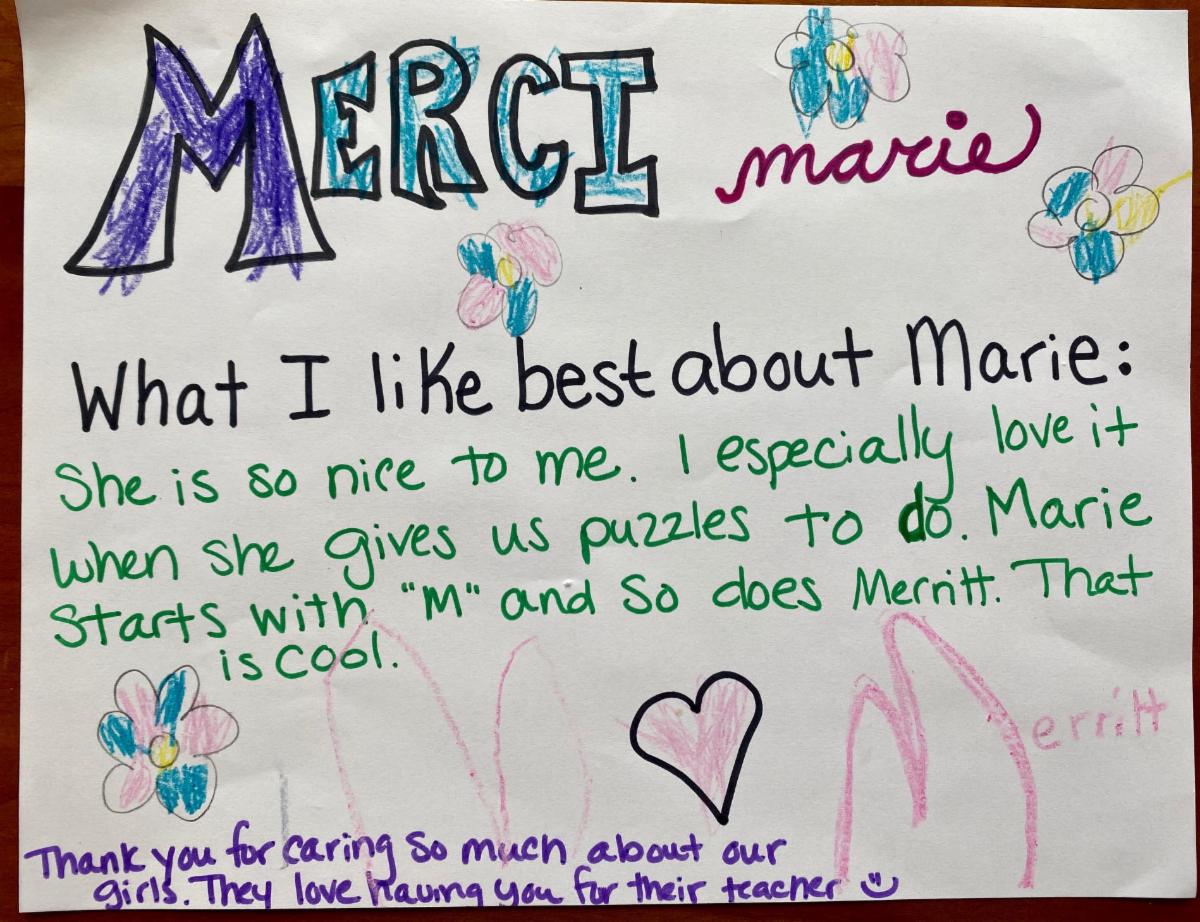 MERCI marie
What I like best about Marie:
She is so nice to me. I especially love it
when she gives us puzzles to do. Marie
Starts with "M" and So does Merritt. That
is cool.
M Merritt
Thank you for caring so much about our
girls. They love having you for their teacher